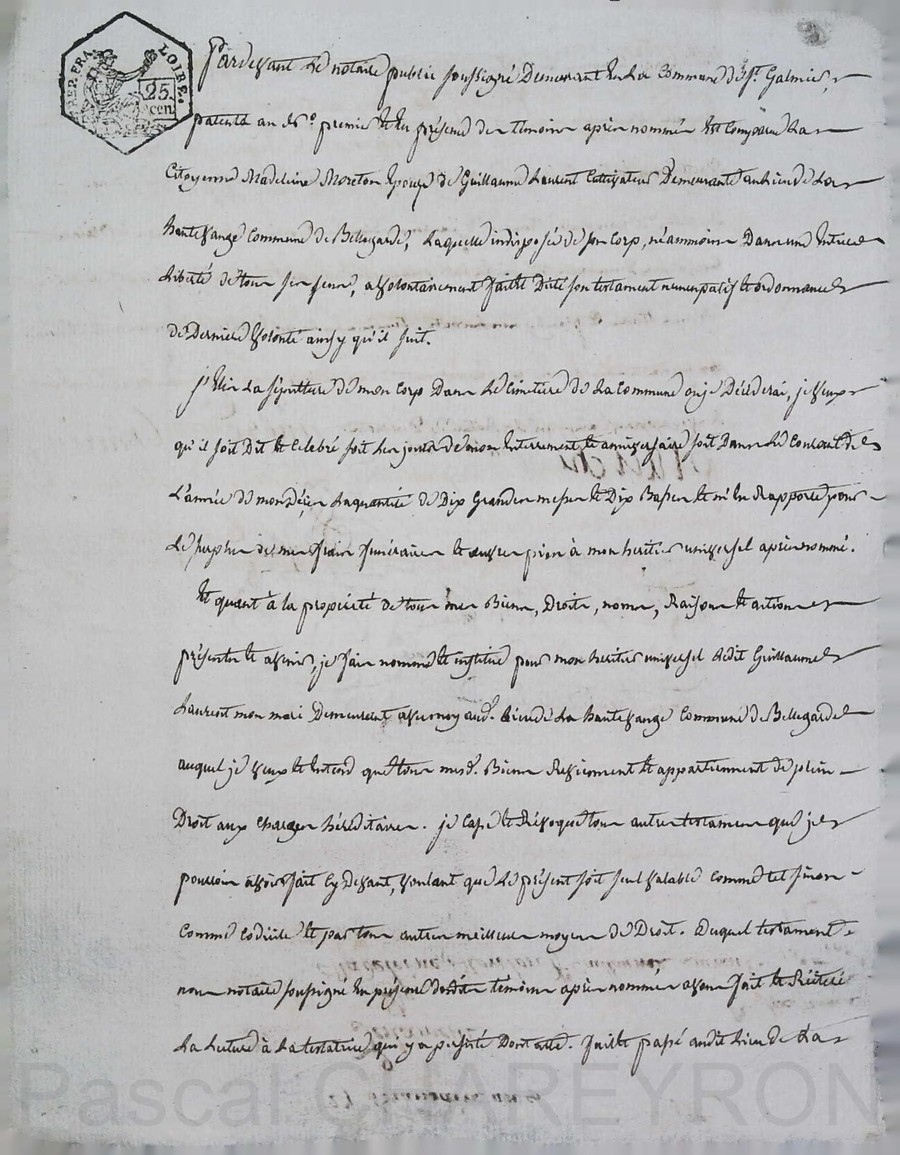 REP. FRA. LOIRE.
25. cen.
Pardevant le notaire public soussigné Demeurant En La Commune de St. Galmier,
patenté an 8e. premier Et En présence des témoins après nommés Est Comparue La
Citoyenne Madeleine Moreton Epouse de Guillaume Laurent Cultivateur Demeurante au Lieu de La
hautevange Commune de Bellegarde, Laquelle indisposée de son Corps, néammoins Dans une Entiere
Liberté de tous ses sens, a volontairement fait Et Dicté son testament nuncupatif Et ordonnance
de Derniere volonté ainsy qu'il suit.
j'Elis La sépulture de mon Corps Dans Le Cimetière de La Commune ou je Décéderai, je veux
qu'il soit Dit Et Célébré soit Les jours de mon Enterrement Et anniversaire soit Dans Le Courant de
L'année de mon décès La quantité de Dix Grandes messes Et Dix Basses Et m'En Rapporte pour
Le surplus de mes frais funéraires Et œuvres pies à mon heritier universel après nommé.
Et quant à la propriété de tous mes Biens, Droits, noms, Raisons Et actions
présents Et avenir, je fais nomme Et institue pour mon heritier universel Ledit Guillaume
Laurent mon mari Demeurant avec moy aud. Lieu de La hautevange Commune de Bellegarde
auquel je veux Et Entend que tous mesd. Biens Reviennent Et appartiennent de plein
Droit aux Charges héréditaires. je Casse Et Révoque tous autres testamens que je
pourrois avoir fait Cy Devant, voulant que Le présent soit seul valable Comme tel sinon
Comme Codicile Et par tous autres meilleurs moyens de Droit. Duquel testament
nous notaire soussigné En présence desdits témoins après nommés avons fait Et Réitéré
La Lecture à La testatrice qui y a persisté Dont acte. fait Et passé audit Lieu de La
Pascal CHAREYRON